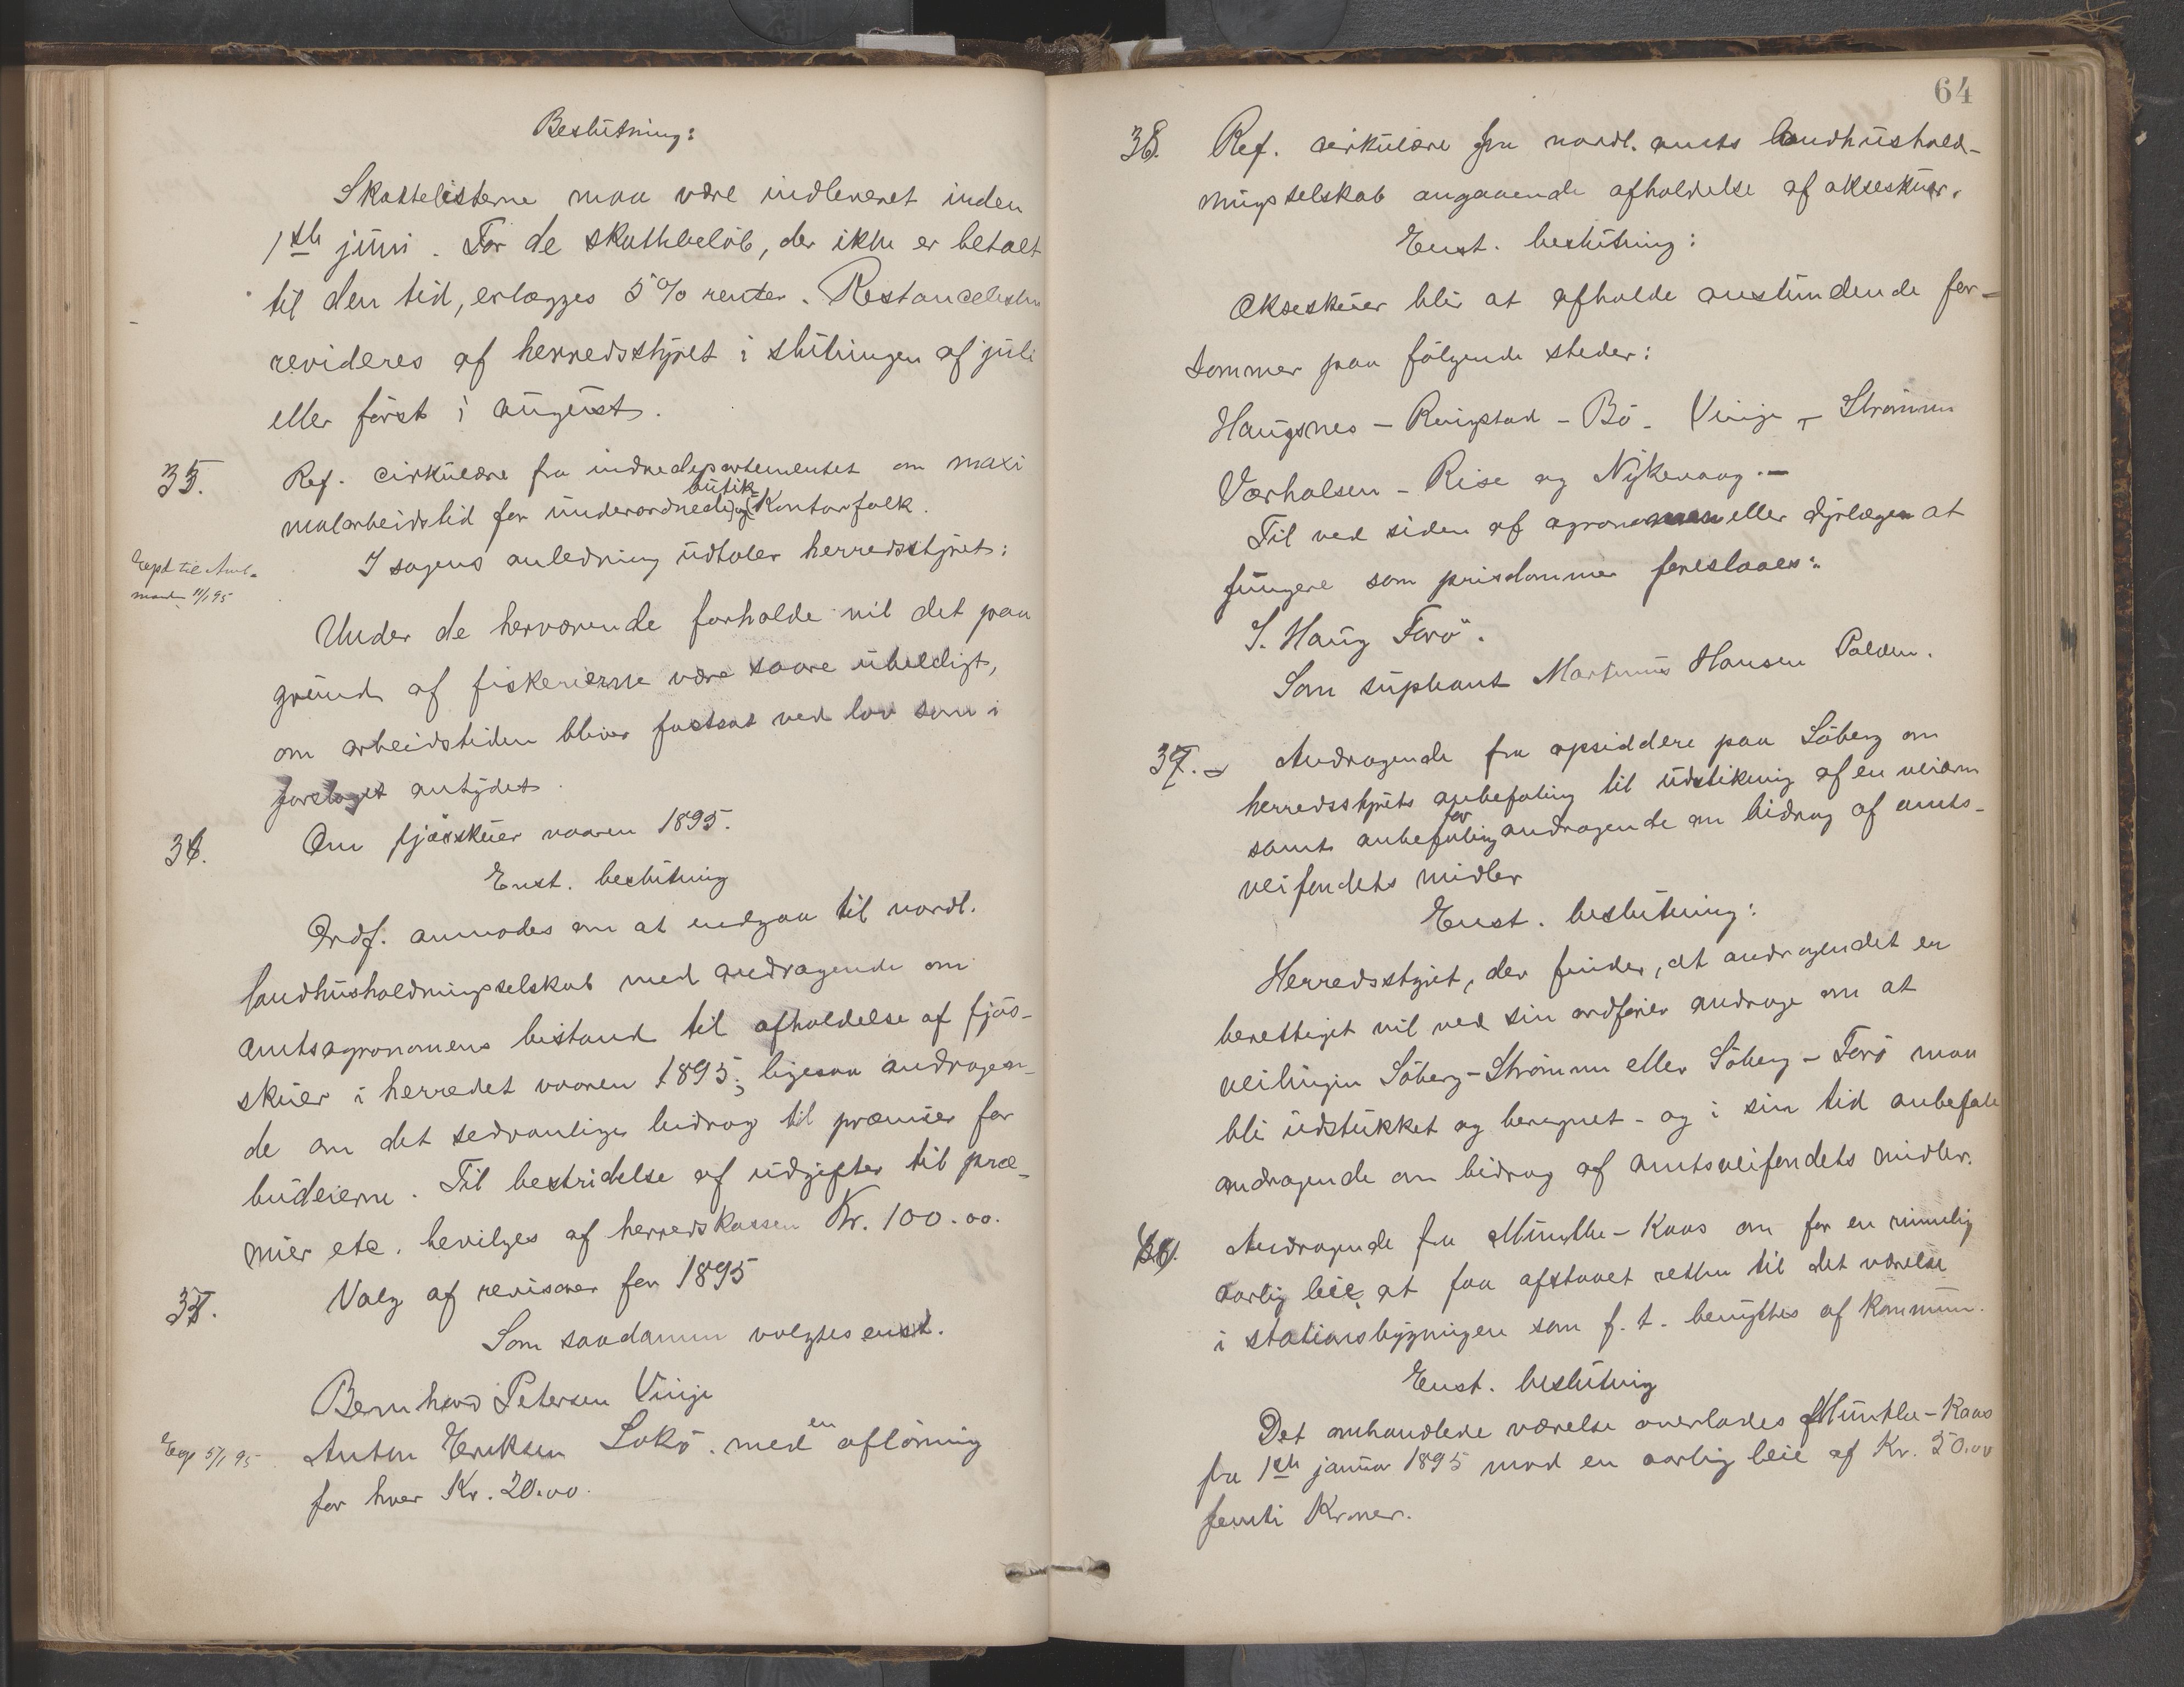 Beslutning:
Skattelisterne maa være indleveret inden
1ste juni. For de skattebeløb, der ikke er betalt
til den tid, erlægges 5% renter. Restancelisten
revideres af herredsstyret i slutningen af juli
eller først i august.
35. Ref. cirkulære fra indredepartementet om maxi
malarbeidstid for underordnede butik- og Kontorfolk.
I sagens anledning udtaler herredsstyret:
Expd til Amt-
mand 11/1 95
Under de herværende forholde vil det paa
grund af fiskerierne være saare uheldigt,
om arbeidstiden bliver fastsat ved lov som i
forslaget antydet.
36. Om fjøsskuer vaaren 1895.
Enst. beslutning
Ordf. anmodes om at indgaa til nordl.
landhusholdningsselskab med andragende om
amtsagronomens bistand til afholdelse af fjøs-
skuer i herredet vaaren 1895; ligesaa andragen-
de om det sedvanlige bidrag til præmier for
budeierne. Til bestridelse af udgifter til præ-
mier etc. bevilges af herredskassen Kr. 100.00.
37. Valg af revisorer for 1895
Som saadanne valgtes enst.
Bernhard Petersen Vinje
Exp 5/1 95 Anton Eriksen Lokø. med en aflønning
for hver Kr. 20.00.
64
38. Ref. cirkulære fra nordl. amts landhushold-
ningsselskab angaaende afholdelse af okseskuer.
Enst. beslutning:
Okseskuer blir at afholde anstundende for-
sommer paa følgende steder:
Haugsnes - Ringstad - Bø - Vinje - Strømmen
Værhalsen - Rise og Nykevaag. -
Til ved siden af agronomen eller dyrlægen at
fungere som prisdommer foreslaaes:
I. Haug Forø.
Som supleant Martinus Hansen Polden.
39. Andragende fra opsiddere paa Søberg om
herredsstyrets anbefaling til udstikning af en veiarm
samt anbefaling for andragende om bidrag af amts-
veifondets midler
Enst. beslutning:
Herredsstyret, der finder, at andragendet er
berettiget vil ved sin ordfører andrage om at
veilinjen Søberg - Strømmen eller Søberg - Forø maa
bli udstukket og beregnet - og i sin tid anbefale
andragende om bidrag af amtsveifondets midler.
40. Andragende fra Münthe-Kaas om for en rimelig
aarlig leie at faa afstaaet retten til det værelse
i stationsbygningen som f. t. benyttes af kommunen.
Enst. beslutning
Det omhandlede værelse overlades Münthe-Kaas
fra 1ste januar 1895 mod en aarlig leie af Kr. 50.00
femti Kroner.